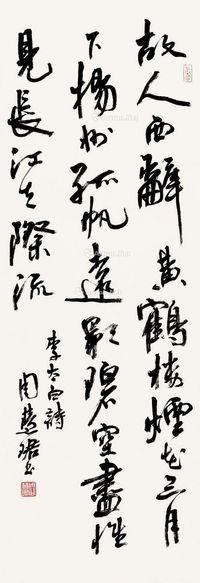 故人西辭黃鶴樓煙花三月
下揚州孤帆遠影碧空盡惟
見長江天際流
李太白詩
周慧珺